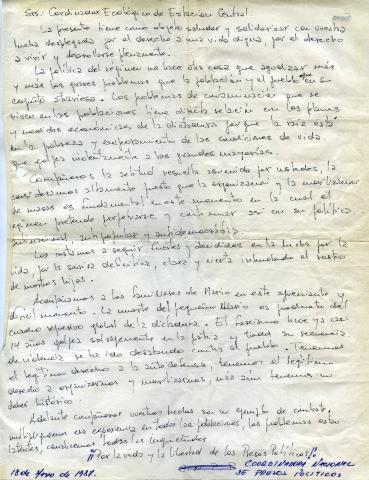 Srs: Coordinador Ecológico de Estación Central
La presente tiene como objeto saludar y solidarizar con vuestra
lucha desplegada por el derecho a una vida digna, por el derecho
a vivir y desarrollarse plenamente.
La política del régimen no hace otra cosa que agudizar más
y más los graves problemas que la población y el pueblo en su
conjunto atraviesa. Los problemas de contaminación que se
viven en las poblaciones tiene directa relación con los planes
y medidas económicas de la dictadura porque la raíz está
en la pobreza y empeoramiento de las condiciones de vida
que golpea violentamente a las grandes mayorías.
Compañeros la actitud resuelta asumida por ustedes, la
consideramos altamente puesto que la organización y la movilización
de masas es fundamental en este momento en la cual el
régimen pretende perpetuarse y continuar así con su política
antipopular y antidemocrática.
Los instamos a seguir fuertes y decididos en la lucha por la
vida, por la
de muchos hijos.
Acompañamos a los familiares de Mario en este apremiante y
difícil momento. La muerte del pequeño Mario es producto del
cuadro represivo global de la dictadura. El fascismo hace ya casi
14 años golpea salvajemente en la patria y toda su secuencia
de violencia se ha ido desatando contra el pueblo. Tenemos
el legítimo derecho a la autodefensa, tenemos el legítimo
derecho a organizarnos y movilizarnos, más aún tenemos un
deber histórico.
Adelante compañeros vuestros hechos son un ejemplo de combate,
multipliquemos esa experiencia en todas las poblaciones, los problemas están
latentes, canalicemos todas las inquietudes
¡¡Por la vida y la libertad de los Presos Políticos!!
COORDINADORA NACIONAL
DE PRESOS POLITICOS
18 de Mayo de 1987.